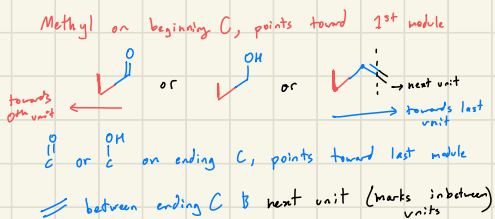 Methyl on beginning C, points toward 1st module
O
OH
or
or
→ next unit
towards
0th unit
towards last
unit
O
OH
C or C on ending C, points toward last module
between ending C & next unit (marks inbetween)
units